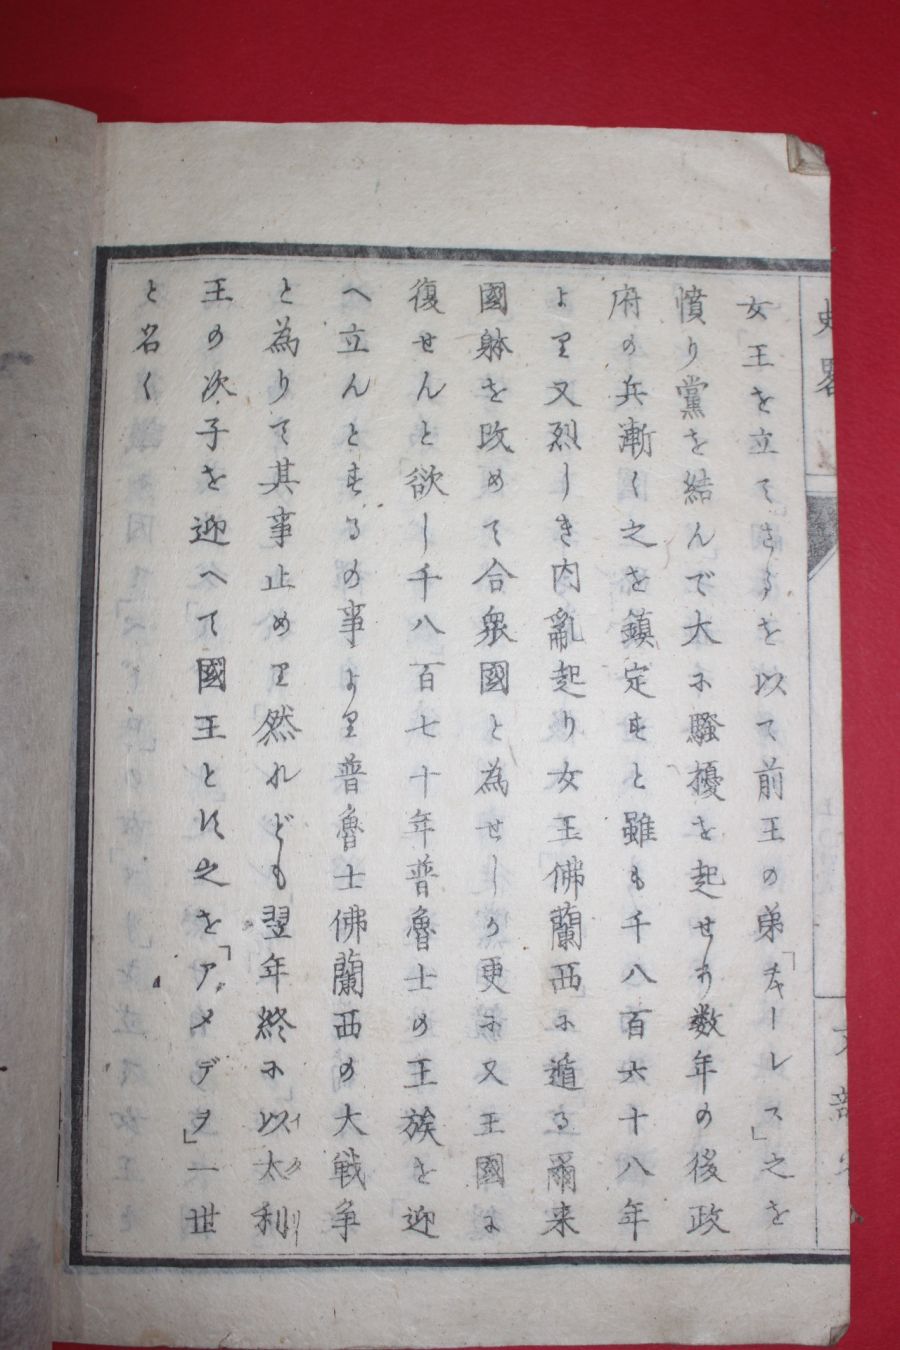 史畧
文部省
女王を立てさるを以て前王の弟「カールレス」之を
憤り黨を結んで大に騷擾を起せり数年の後政
府の兵漸く之を鎮定すと雖も千八百六十八年
より又烈しき内亂起り女王佛蘭西に遁る爾来
國躰を改めて合衆國と為せしか更に又王國に
復せんと欲し千八百七十年普魯士の王族を迎
へ立んとするの事より普魯士佛蘭西の大戦争
と為りて其事止めり然れども翌年終に以太利
王の次子を迎へて國王とす之を「アメデヲ」一世
と名く